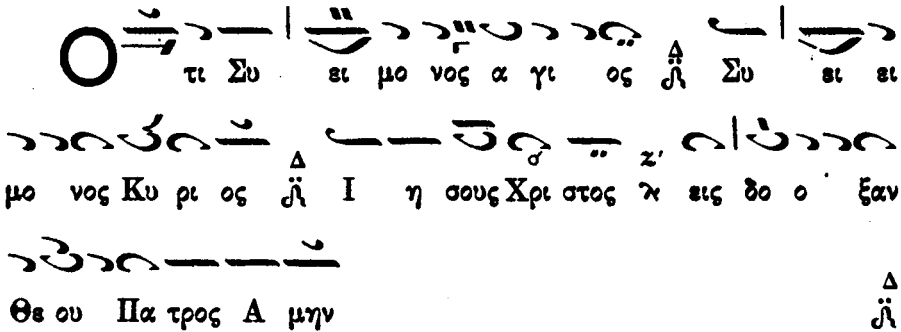 Ο τι Συ ει μο νος α γι ος Δ Συ ει ει
μο νος Κυ ρι ος Δ Ι η σους Χρι στος ζ' εις δο ο ξαν
Θε ου Πα τρος Α μην Δ